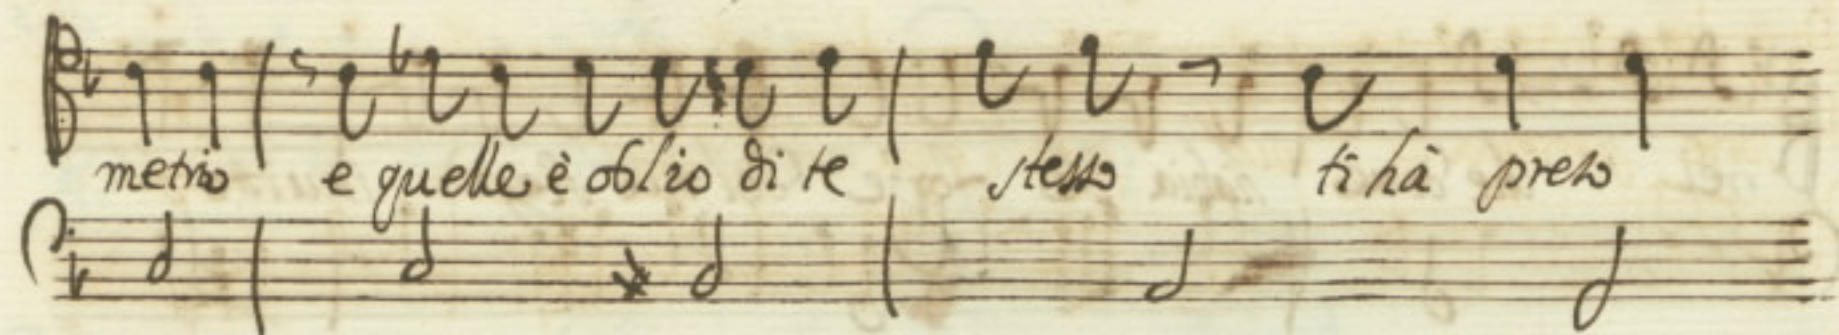 metrio e quelle è oblio di te stesso ti hà preso